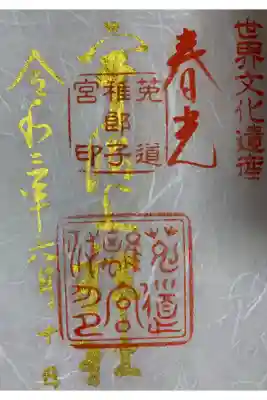 世界文化遺産
春光
菟道
稚郎子
宮印
宇治上神社
菟道
離宮
令和三年六月